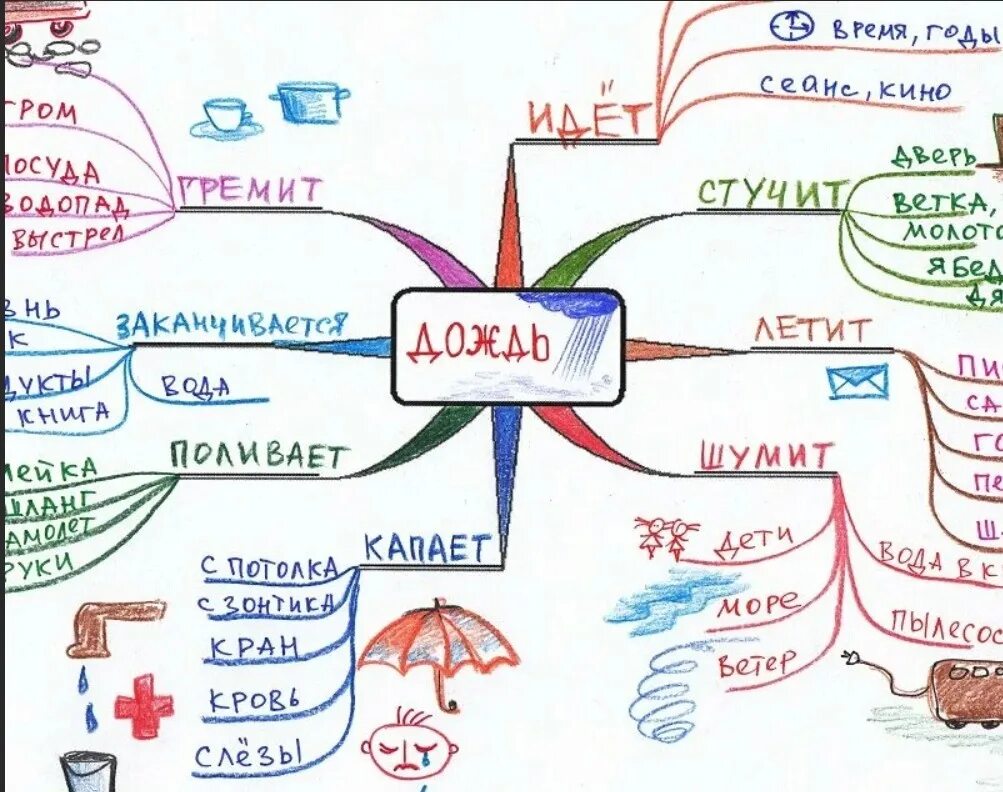 ДОЖДЬ
ИДЁТ
ВРЕМЯ, ГОДЫ
СЕАНС, КИНО
СТУЧИТ
ДВЕРЬ
ВЕТКА,
МОЛОТО
ЯБЕД
ДЯ
ЛЕТИТ
ПИ
СА
ГО
ПЕ
Ш
ШУМИТ
ДЕТИ
МОРЕ
ВЕТЕР
ВОДА В К
ПЫЛЕСОС
КАПАЕТ
С ПОТОЛКА
С ЗОНТИКА
КРАН
КРОВЬ
СЛЁЗЫ
ПОЛИВАЕТ
ЛЕЙКА
ШЛАНГ
АМОЛЕТ
РУКИ
ЗАКАНЧИВАЕТСЯ
НЬ
К
ДУКТЫ
КНИГА
ВОДА
ГРЕМИТ
ГРОМ
ПОСУДА
ВОДОПАД
ВЫСТРЕЛ